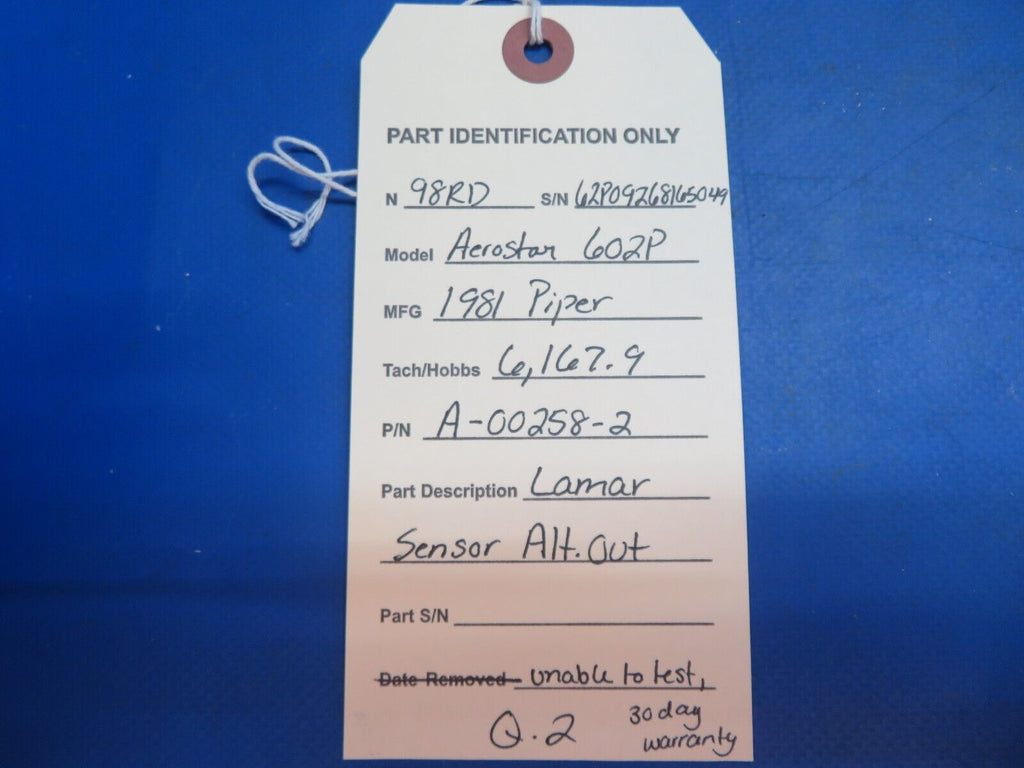 PART IDENTIFICATION ONLY
N 98RD S/N 62P09268165049
Model Aerostar 602P
MFG 1981 Piper
Tach/Hobbs 6,167.9
P/N A-00258-2
Part Description Lamar
Sensor Alt. Out
Part S/N
Date Removed unable to test,
Q.2 30 day
warranty